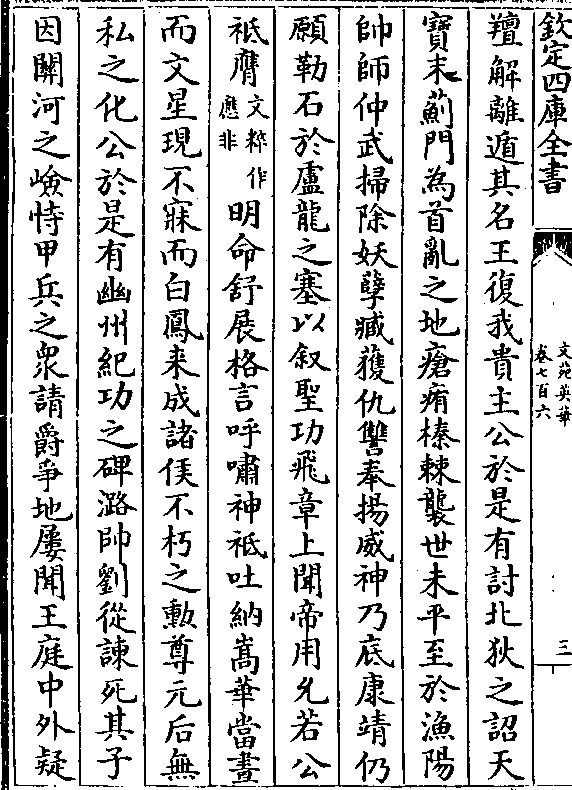 欽定四庫全書
文苑英華
卷七百六
三
羶解離遁其名王復我貴主公於是有討北狄之詔天
寳末薊門為首亂之地瘡痏榛棘襲世未平至於漁陽
帥師仲武掃除妖孽臧獲仇讐奉揚威神乃底康靖仍
願勒石於盧龍之塞以叙聖功飛章上聞帝用允若公
祗膺文粹作應非明命舒展格言呼嘯神祗吐納嵩華當晝
而文星現不寐而白鳳来成諸侯不朽之勲尊元后無
私之化公於是有幽州紀功之碑潞帥劉從諫死其子
因關河之嶮恃甲兵之衆請爵爭地屢聞王庭中外疑